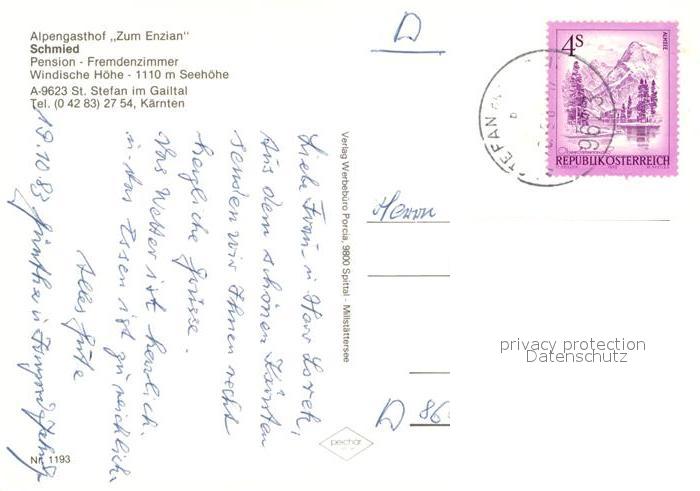 Alpengasthof „Zum Enzian"
Schmied
Pension - Fremdenzimmer
Windische Höhe - 1110 m Seehöhe
A-9623 St. Stefan im Gailtal
Tel. (0 42 83) 27 54, Kärnten
19.10.83
Liebe Frau u Herr
aus dem schönen Kärnten
senden wir Ihnen recht
herzliche Grüsse.
Das Wetter ist herrlich
u. das Essen ist zu reichlich.
Alles Gute
Nr. 1193
Verlag Werbebüro Porcia, 9800 Spittal - Millstättersee
D
4S
ALMSEE
REPUBLIK ÖSTERREICH
STEFAN
9623
Herrn
D 86
peichar
privacy protection
Datenschutz